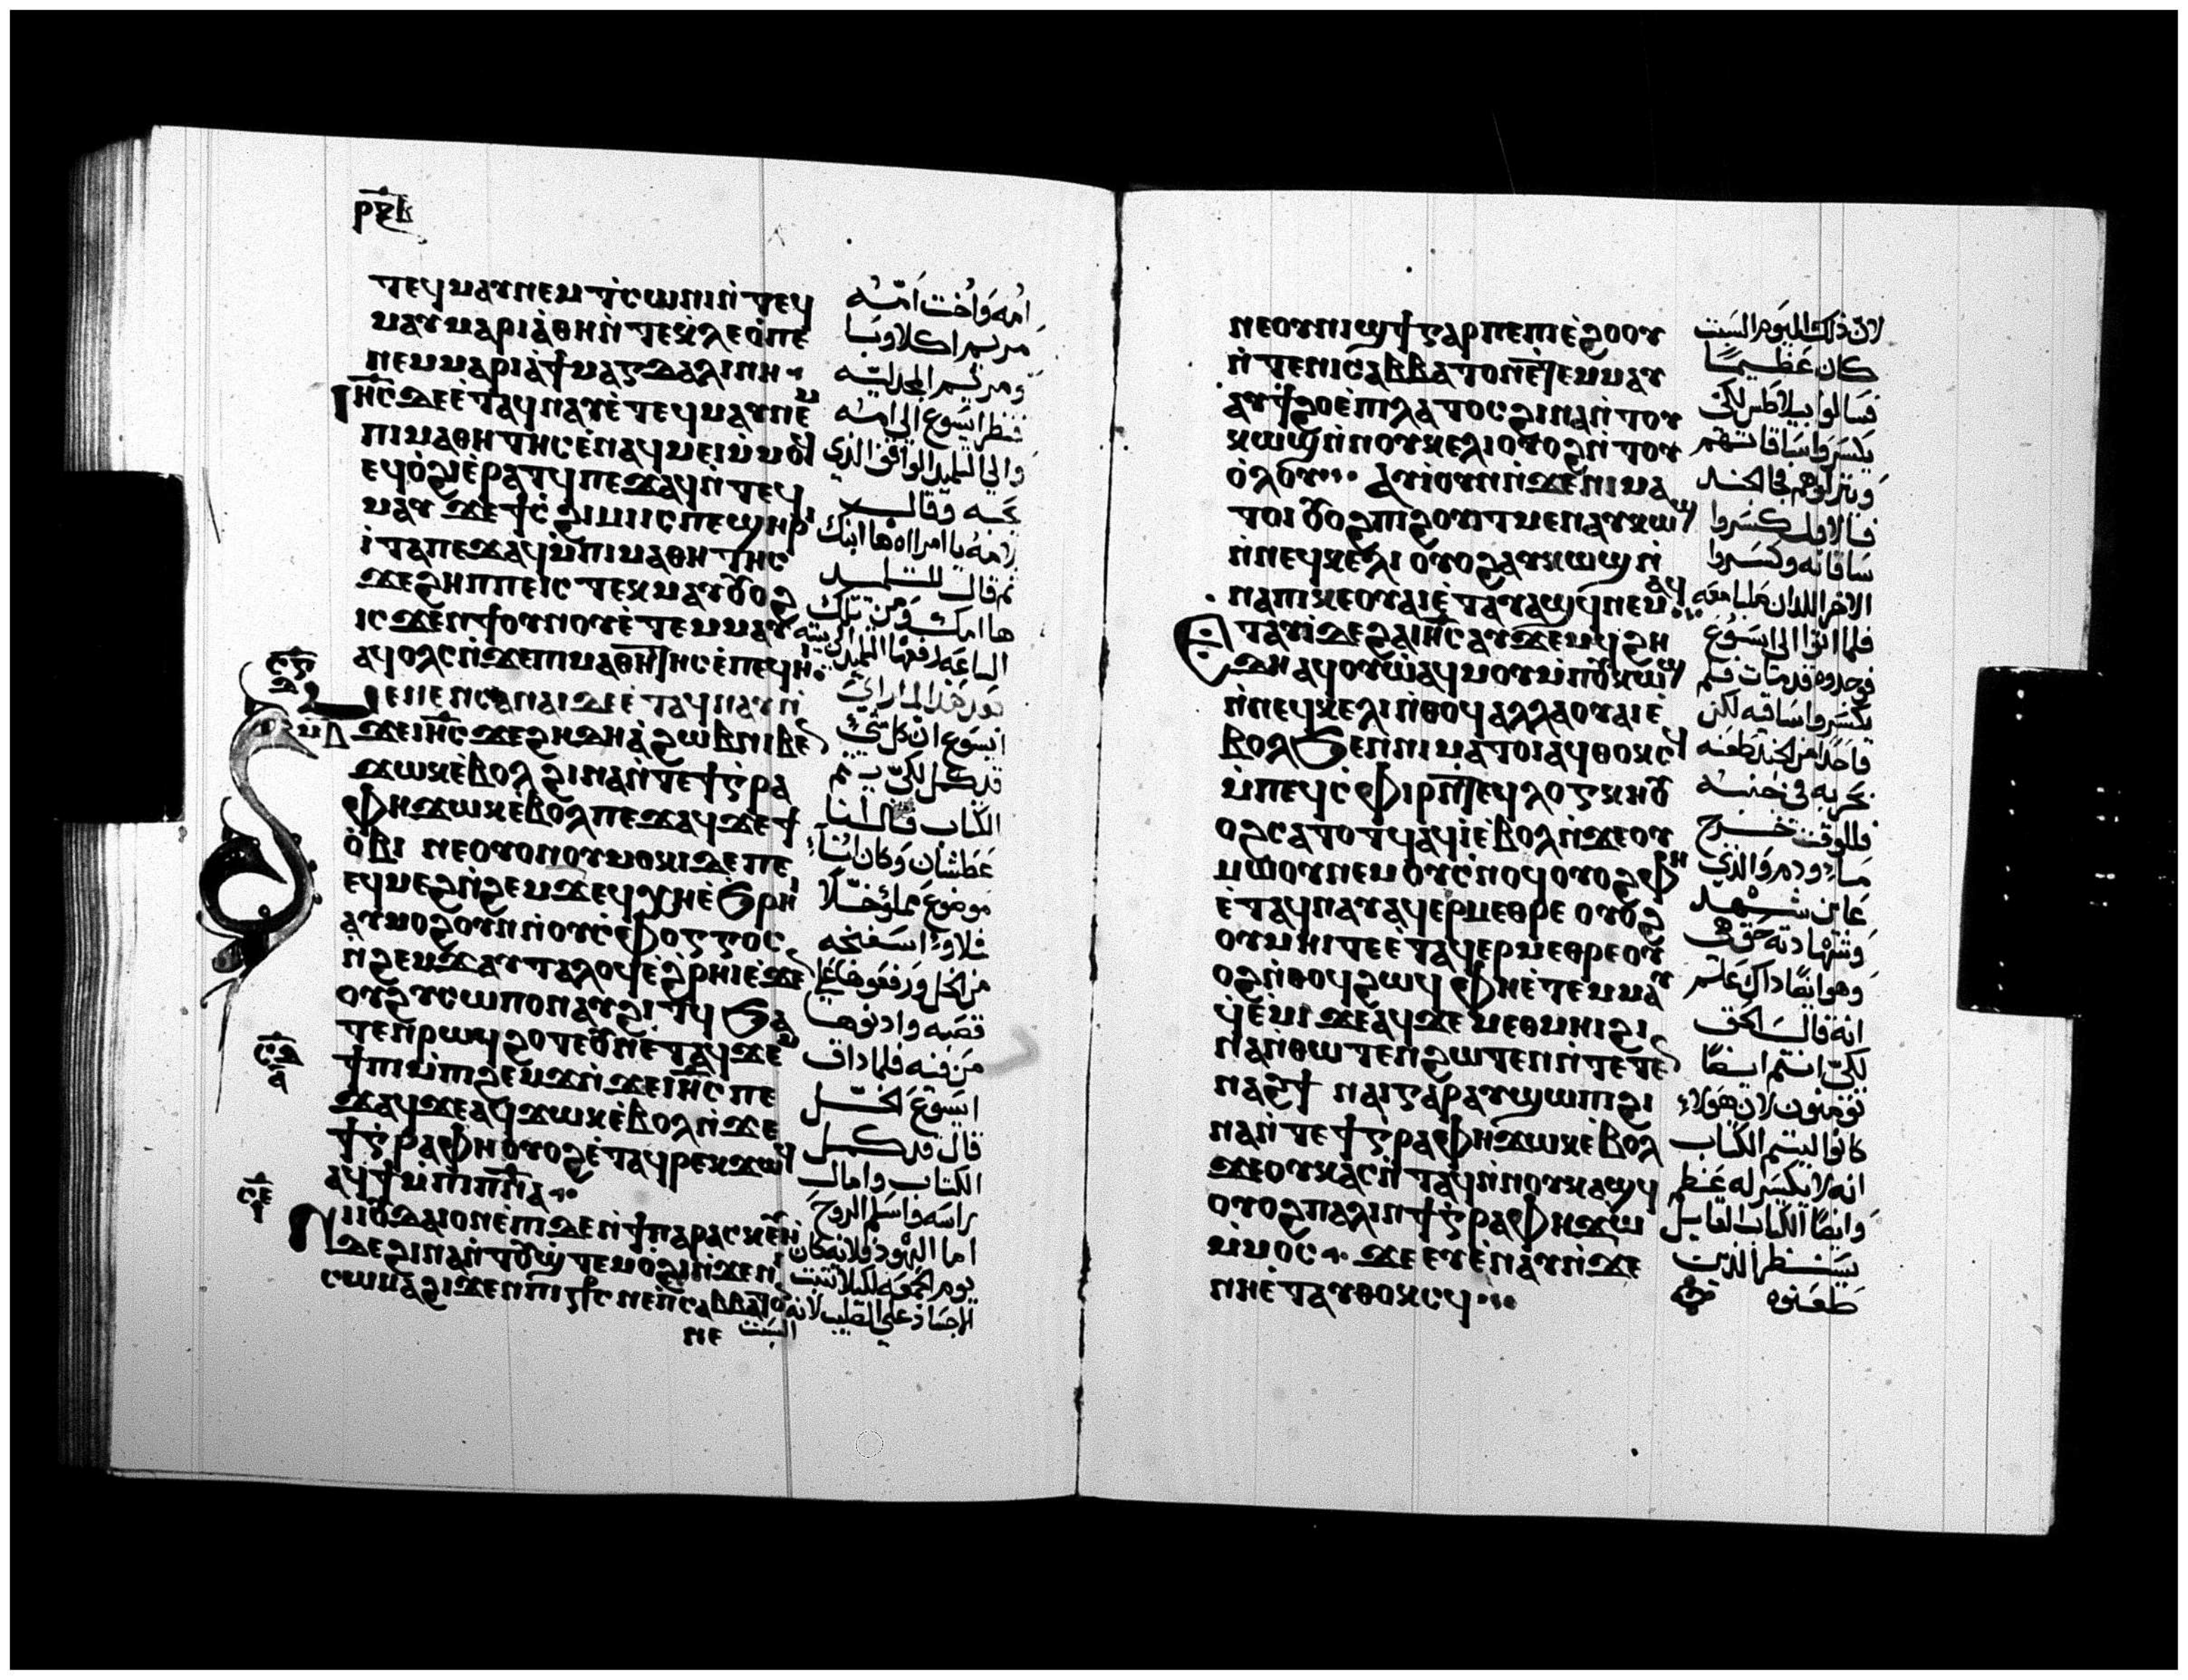 ⲣⲝⲃ
ⲧⲉϥⲙⲁⲩ ⲛⲉⲙ ⲧ̀ⲥⲱⲛⲓ ⲛ̀ⲧⲉϥ
ⲙⲁⲩ ⲙⲁⲣⲓⲁ̀ ⲑⲏ ⲛ̀ⲧⲉⲭ̀ⲗⲉⲟ̀ⲡⲉ
ⲛⲉⲙ ⲙⲁⲣⲓⲁ̀ ϯⲙⲁⲅⲇⲁⲗⲓⲛⲏ
ⲓⲏ̅ⲥ̅ ⲇⲉ ⲉ̀ⲧⲁϥⲛⲁⲩ ⲉ̀ⲧⲉϥⲙⲁⲩ ⲛⲉⲙ
ⲡⲓⲙⲁⲑⲏⲧⲏⲥ ⲉ̀ⲛⲁϥⲙⲉⲓ ⲙ̀ⲙⲟϥ
ⲉϥⲟ̀ϩⲓ ⲉ̀ⲣⲁⲧϥ ⲡⲉϫⲁϥ ⲛ̀ⲧⲉϥ
ⲙⲁⲩ ϫⲉ ϯⲥ̀ϩⲓⲙⲓ ⲓⲥ ⲡⲉϣⲏⲣⲓ
ⲓ̀ⲧⲁ ⲡⲉϫⲁϥ ⲙ̀ⲡⲓⲙⲁⲑⲏⲧⲏⲥ
ϫⲉ ϩⲏⲡⲡⲉ ⲓⲥ ⲧⲉⲕⲙⲁⲩ ⲟⲩⲟϩ
ⲓⲥϫⲉⲛ ϯⲟⲩⲛⲟⲩ ⲉ̀ⲧⲉⲙⲙⲁⲩ
ⲁϥⲟⲗⲥ ⲛ̀ϫⲉ ⲡⲓⲙⲁⲑⲏⲧⲏⲥ ⲉ̀ⲡⲉϥⲏⲓ
ⲙⲉⲛⲉⲛⲥⲁ ⲛⲁⲓ ⲇⲉ ⲉ̀ⲧⲁϥⲛⲁⲩ ⲛ̀
ϫⲉ ⲓⲏ̅ⲥ̅ ϫⲉ ϩⲏⲇⲏ ⲁ̀ ϩⲱⲃ ⲛⲓⲃⲉⲛ
ϫⲱⲕ ⲉ̀ⲃⲟⲗ ϩⲓⲛⲁ ⲛ̀ⲧⲉ ϯⲅ̀ⲣⲁ
ⲫⲏ ϫⲱⲕ ⲉ̀ⲃⲟⲗ ⲡⲉϫⲁϥ ϫⲉ ϯ
ⲟ̀ⲃⲓ ⲛⲉ ⲟⲩⲟⲛ ⲟⲩⲙⲟⲕⲓ ⲇⲉ ⲡⲉ
ⲉϥⲙⲉϩ ⲛ̀ϩⲉⲙϫ ⲉϥⲭⲏ ⲉ̀ϧⲣⲏⲓ
ⲁⲩⲙⲟϩ ⲟⲩⲛ ⲛ̀ⲟⲩⲥ̀ⲫⲟⲅⲅⲟⲥ
ⲛ̀ϩⲉⲙϫ ⲁⲩⲧⲁⲗⲟϥ ⲉ̀ϩ̀ⲣⲏⲓ ⲉ̀ϫⲉⲛ
ⲟⲩϩⲩⲥⲱⲡⲟⲛ ⲁⲩϩⲓⲧϥ ϧⲁ
ⲧⲉⲛ ⲣⲱϥ ϩⲟⲧⲉ ⲟⲩⲛ ⲉ̀ⲧⲁϥϫⲉⲙ
ϯⲡⲓ ⲙ̀ⲡⲓϩⲉⲙϫ ⲛ̀ϫⲉ ⲓⲏ̅ⲥ̅ ⲡⲉ
ϫⲁϥ ϫⲉ ⲁϥϫⲱⲕ ⲉ̀ⲃⲟⲗ ⲛ̀ϫⲉ
ϯⲅ̀ⲣⲁⲫⲏ ⲟⲩⲟϩ ⲉ̀ⲧⲁϥⲣⲉⲕ ϫⲱϥ
ⲁϥϯ ⲙ̀ⲡⲓⲡⲛ̅ⲁ̅
ⲛⲓⲓⲟⲩⲇⲁⲓ ⲟⲛ ⲉ̀ⲡⲓⲇⲉ ⲛⲉ ϯⲡⲁⲣⲁⲥⲕⲉⲩⲏ
ⲇⲉ ϩⲓⲛⲁ ⲛ̀ⲧⲟⲩϣⲧⲉⲙⲟ̀ϩⲓ ⲛ̀ϫⲉ ⲛⲓ
ⲥⲱⲙⲁ ϩⲓϫⲉⲛ ⲡⲓⲥ̅ⲧ̅ⲥ̅ ⲛⲉ ⲡⲥⲁⲃⲃⲁⲧⲟⲛ
ⲛⲉ
امه واخت امه
مريم اكلاوبا
ومريم المجدلية
فنظر ايسوع الى امه
والي التلميد الواقف الذي
يحبه فقال
لامه يا امراه ها ابنك
ثم قال للتلميد
ها امك ومن تلك
الساعه اخدها التلميد الى بيته
بعد هذا لما راي
ايسوع ان كل شي
قد كمل لكي يتم
الكتاب قال انا
عطشان وكان اناء
موضوع مملو خلا
فملاوا اسفنجه
من الخل ورفعوها علي
قصبه وادنوها
من فمه فلما داق
ايسوع الخل
قال قد كمل
الكتاب وامال
راسه واسلم الروح
اما اليهود فلانه كان
يوم الجمعه لكيلا تثبت
الاجساد علي الصليب لانه
السبت
ⲛⲉ ⲟⲩⲛⲓϣϯ ⲅⲁⲣ ⲡⲉ ⲡⲓⲉ̀ϩⲟⲟⲩ
ⲛ̀ⲧⲉ ⲛⲓⲥⲁⲃⲃⲁⲧⲟⲛ ⲉ̀ⲧⲉⲙⲙⲁⲩ
ⲁⲩϯϩⲟ ⲉ̀ⲡⲓⲗⲁⲧⲟⲥ ϩⲓⲛⲁ ⲛ̀ⲧⲟⲩ
ⲕⲱϣ ⲛ̀ⲛⲟⲩⲕⲉⲗⲓ ⲟⲩⲟϩ ⲛ̀ⲧⲟⲩ
ⲟ̀ⲗⲟⲩ ⲁⲩⲓ̀ ⲟⲩⲛ ⲛ̀ϫⲉ ⲛⲓⲙⲁ
ⲧⲟⲓ ⲟⲩⲟϩ ⲡⲓϩⲟⲩⲓⲧ ⲙⲉⲛ ⲁⲩⲕⲱϣ
ⲛ̀ⲛⲉϥⲕⲉⲗⲓ ⲟⲩⲟϩ ⲁⲩⲕⲱϣ ⲛ̀
ⲛⲁ ⲡⲓⲕⲉⲟⲩⲁⲓ ⲉ̀ⲧⲁⲩⲁϣϥ ⲛⲉⲙⲁϥ
ⲉ̀ⲧⲁⲩⲓ̀ ⲇⲉ ϩⲁ ⲓⲏ̅ⲥ̅ ⲁⲩϫⲉⲙϥ ϩⲏ
ⲇⲏ ⲁϥⲟⲩⲱ ⲁϥⲙⲟⲩ ⲙ̀ⲡⲟⲩⲕⲱϣ
ⲛ̀ⲛⲉϥⲕⲉⲗⲓ ⲛ̀ⲑⲟϥ ⲁⲗⲗⲁ ⲟⲩⲁⲓ ⲉ̀
ⲃⲟⲗ ϧⲉⲛ ⲛⲓⲙⲁⲧⲟⲓ ⲁϥⲑⲟⲕⲥϥ
ⲙ̀ⲡⲉϥⲥ̀ⲫⲓⲣ ⲛ̀ⲧⲉϥⲗⲟⲅⲭⲏ ⲟⲩ
ⲟϩ ⲥⲁⲧⲟⲧϥ ⲁϥⲓ̀ ⲉ̀ⲃⲟⲗ ⲛ̀ϫⲉ ⲟⲩ
ⲙⲱⲟⲩ ⲛⲉⲙ ⲟⲩⲥ̀ⲛⲟϥ ⲟⲩⲟϩ ⲫⲏ
ⲉ̀ⲧⲁϥⲛⲁⲩ ⲁϥⲉⲣⲙⲉⲑⲣⲉ ⲟⲩⲟϩ
ⲟⲩⲙⲏⲓ ⲧⲉ ⲉ̀ⲧⲁϥⲉⲣⲙⲉⲑⲣⲉ ⲟⲩ
ⲟϩ ⲛ̀ⲑⲟϥ ϩⲱϥ ⲫⲏ ⲉ̀ⲧⲉⲙⲙⲁⲩ
ϥ̀ⲉ̀ⲙⲓ ϫⲉ ⲁϥϫⲉ ⲙⲉⲑⲙⲏⲓ ϩⲓ
ⲛⲁ ⲛ̀ⲑⲱⲧⲉⲛ ϩⲱⲧⲉⲛ ⲛ̀ⲧⲉⲧⲉⲛ
ⲛⲁϩϯ ⲛⲁⲓ ⲅⲁⲣ ⲁⲩϣⲱⲡⲓ ϩⲓ
ⲛⲁ ⲛ̀ⲧⲉ ϯⲅ̀ⲣⲁⲫⲏ ϫⲱⲕ ⲉ̀ⲃⲟⲗ
ϫⲉ ⲟⲩⲕⲁⲥ ⲛ̀ⲧⲁϥ ⲛ̀ⲛⲟⲩⲕⲁϣϥ
ⲟⲩⲟϩ ⲡⲁⲗⲓⲛ ϯⲅ̀ⲣⲁⲫⲏ ϫⲱ
ⲙ̀ⲙⲟⲥ ϫⲉ ⲉⲩⲉ̀ⲛⲁⲩ ⲛ̀ϫⲉ
ⲛⲏ ⲉ̀ⲧⲁⲩⲑⲟⲕⲥϥ
لان ذلك اليوم السبت
كان عظيما
فسالوا بيلاطس لكي
يكسروا ساقاتهم
وينزلوهم فجا الجند
فالاول كسروا
ساقاته وكسروا
الاخر اللدان صلبا معه
فلما اتوا الى ايسوع
فوجدوه قد مات فلم
يكسروا ساقيه لكن
واحدا من الجند طعنه
بحربه في جنبه
فللوقت خرج
ما ودم والذي
عاين شهد
وشهادته حق هي
وهو ايضا داك عالم
انه قال الحق
لكي انتم ايضا
تومنون لان هولاء
كانوا ليتم الكتاب
انه لا يكسر له عظم
وايضا الكتاب القايل
سينظر الذين
طعنوه